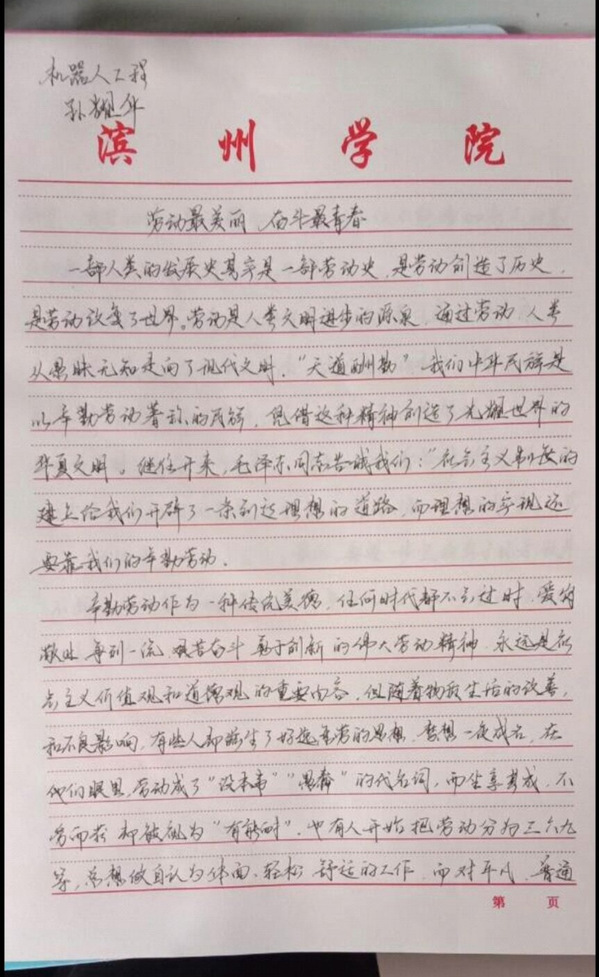 机器人工程
孙耀华
滨州学院
劳动最美丽 奋斗最青春
一部人类的发展史其实是一部劳动史，是劳动创造了历史，
是劳动改变了世界。劳动是人类文明进步的源泉，通过劳动，人类
从愚昧无知走向了现代文明，“天道酬勤”，我们中华民族是
以辛勤劳动著称的民族，凭借这种精神创造了光耀世界的
华夏文明。继往开来，毛泽东同志告诫我们：“社会主义制度的
建立给我们开辟了一条到达理想的道路，而理想的实现还
要靠我们的辛勤劳动.
辛勤劳动作为一种传统美德，任何时代都不会过时，爱岗
敬业 争创一流 艰苦奋斗 勇于创新的伟大劳动精神，永远是社
会主义价值观和道德观的重要内容，但随着物质生活的改善，
和不良影响，有些人却滋生了好逸恶劳的思想，梦想一夜成名，在
他们眼里，劳动成了“没本事”“愚蠢”的代名词，而坐享其成，不
劳而获却被视为“有能耐”，也有人开始把劳动分为三六九
等，总想做自认为体面、轻松、舒适的工作，而对平凡、普通
第 页